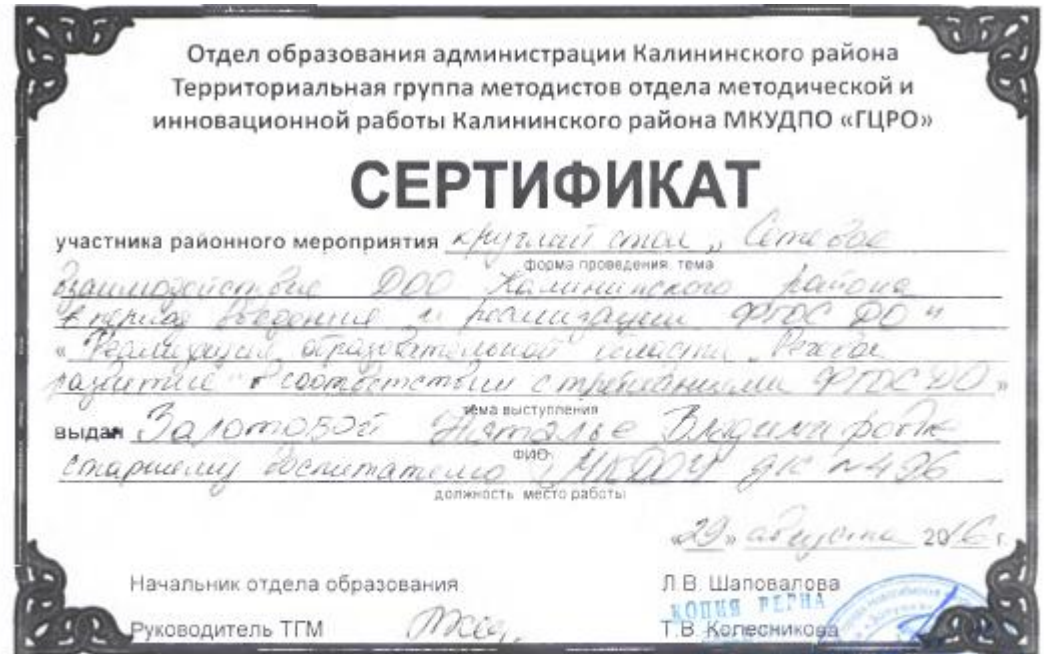 Отдел образования администрации Калининского района
Территориальная группа методистов отдела методической и
инновационной работы Калининского района МКУДПО «ГЦРО»
СЕРТИФИКАТ
участника районного мероприятия круглый стол „Сетевое
форма проведения, тема
взаимодействие ДОО Калининского района
в период введения и реализации ФГОС ДО"
«Реализация образовательной области „Речевое
развитие" в соответствии с требованиями ФГОС ДО»
тема выступления
выдан Золотовой Наталье Владимировне
ФИО
старшему воспитателю МКДОУ д/с №496
должность место работы
«29» августа 2016 г.
Начальник отдела образования Л.В. Шаповалова
КОПИЯ ВЕРНА
Руководитель ТГМ Т.В. Колесникова